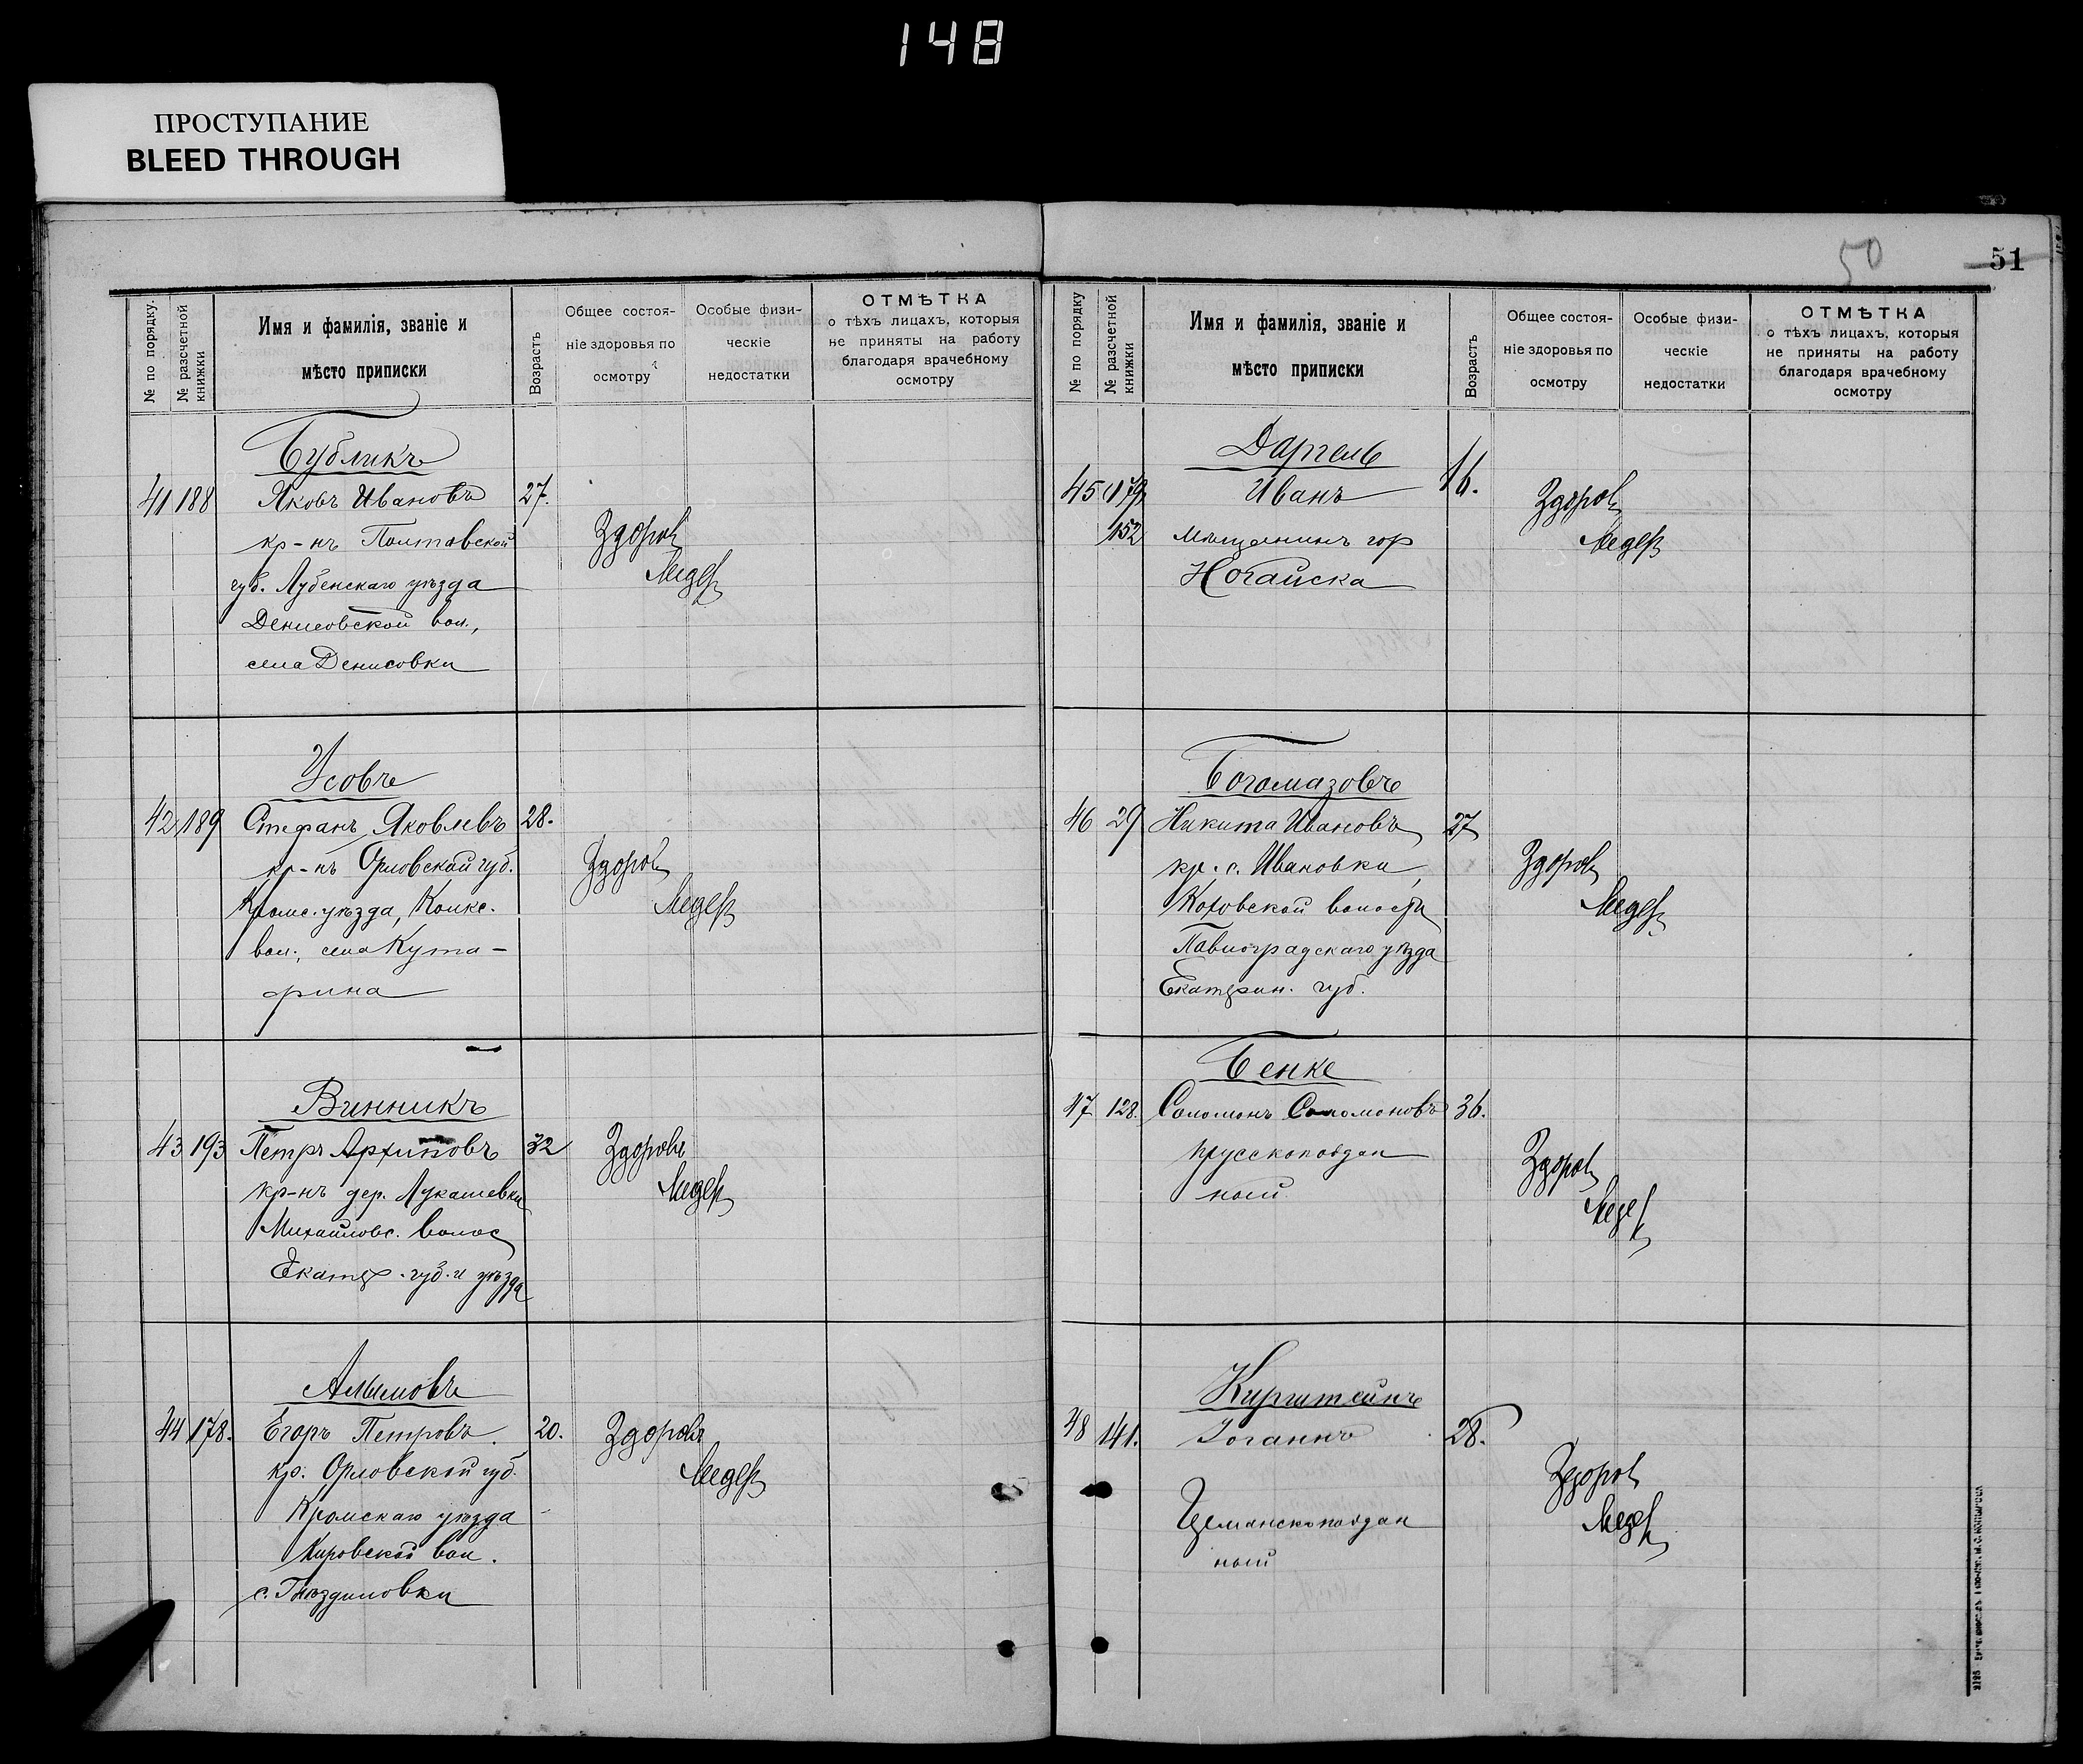 148
ПРОСТУПАНИЕ
BLEED THROUGH
№ по порядку.
№ разсчетной книжки
Имя и фамилія, званіе и
мѣсто приписки
Возрастъ
Общее состоя-
ніе здоровья по
осмотру
Особые физи-
ческіе
недостатки
ОТМѢТКА
о тѣхъ лицахъ, которыя
не приняты на работу
благодаря врачебному
осмотру
Бубликъ
41 188 Яковъ Ивановъ 27.
кр-нъ Полтавской
губ. Лубенскаго уѣзда
Денисовской вол.,
села Денисовки
Здоров
Усовъ
42 189 Стефанъ Яковлевъ 28.
кр-нъ Орловской губ.
Кромс. уѣзда,
вол., села Кута-
фина
Здоров
Винникъ
43 193 Петръ Архиповъ 32
кр-нъ дер. Лукашевки
Михайловс. волос
Екатер. губ. и уѣзда
Здоровъ
Алымовъ
44 178. Егоръ Петровъ. 20.
кр. Орловской губ.
Кромскаго уѣзда
Кировской вол.
с. Гнѣздиловки
Здоровъ
50
51
№ по порядку
№ разсчетной книжки
Имя и фамилія, званіе и
мѣсто приписки
Возрастъ
Общее состоя-
ніе здоровья по
осмотру
Особые физи-
ческіе
недостатки
ОТМѢТКА
о тѣхъ лицахъ, которыя
не приняты на работу
благодаря врачебному
осмотру
Даргель
45 179 Иванъ 16.
152 мѣщанинъ гор
Ногайска
Здоров
Богомазовъ
46 29 Никита Ивановъ 27
кр. с. Ивановки,
Коховской волости
Павлоградскаго уѣзда
Екатерин. губ.
Здоров
Бенке
47 128. Соломонъ Соломоновъ 36.
прусскоподдан
ный
Здоров
Кирштейнъ
48 141. Іоганнъ 28.
Германскоподдан
ный
Здоров